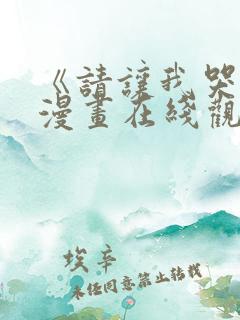 《請讓我哭
漫畫在綫觀
埃辛
未經同意禁止轉載